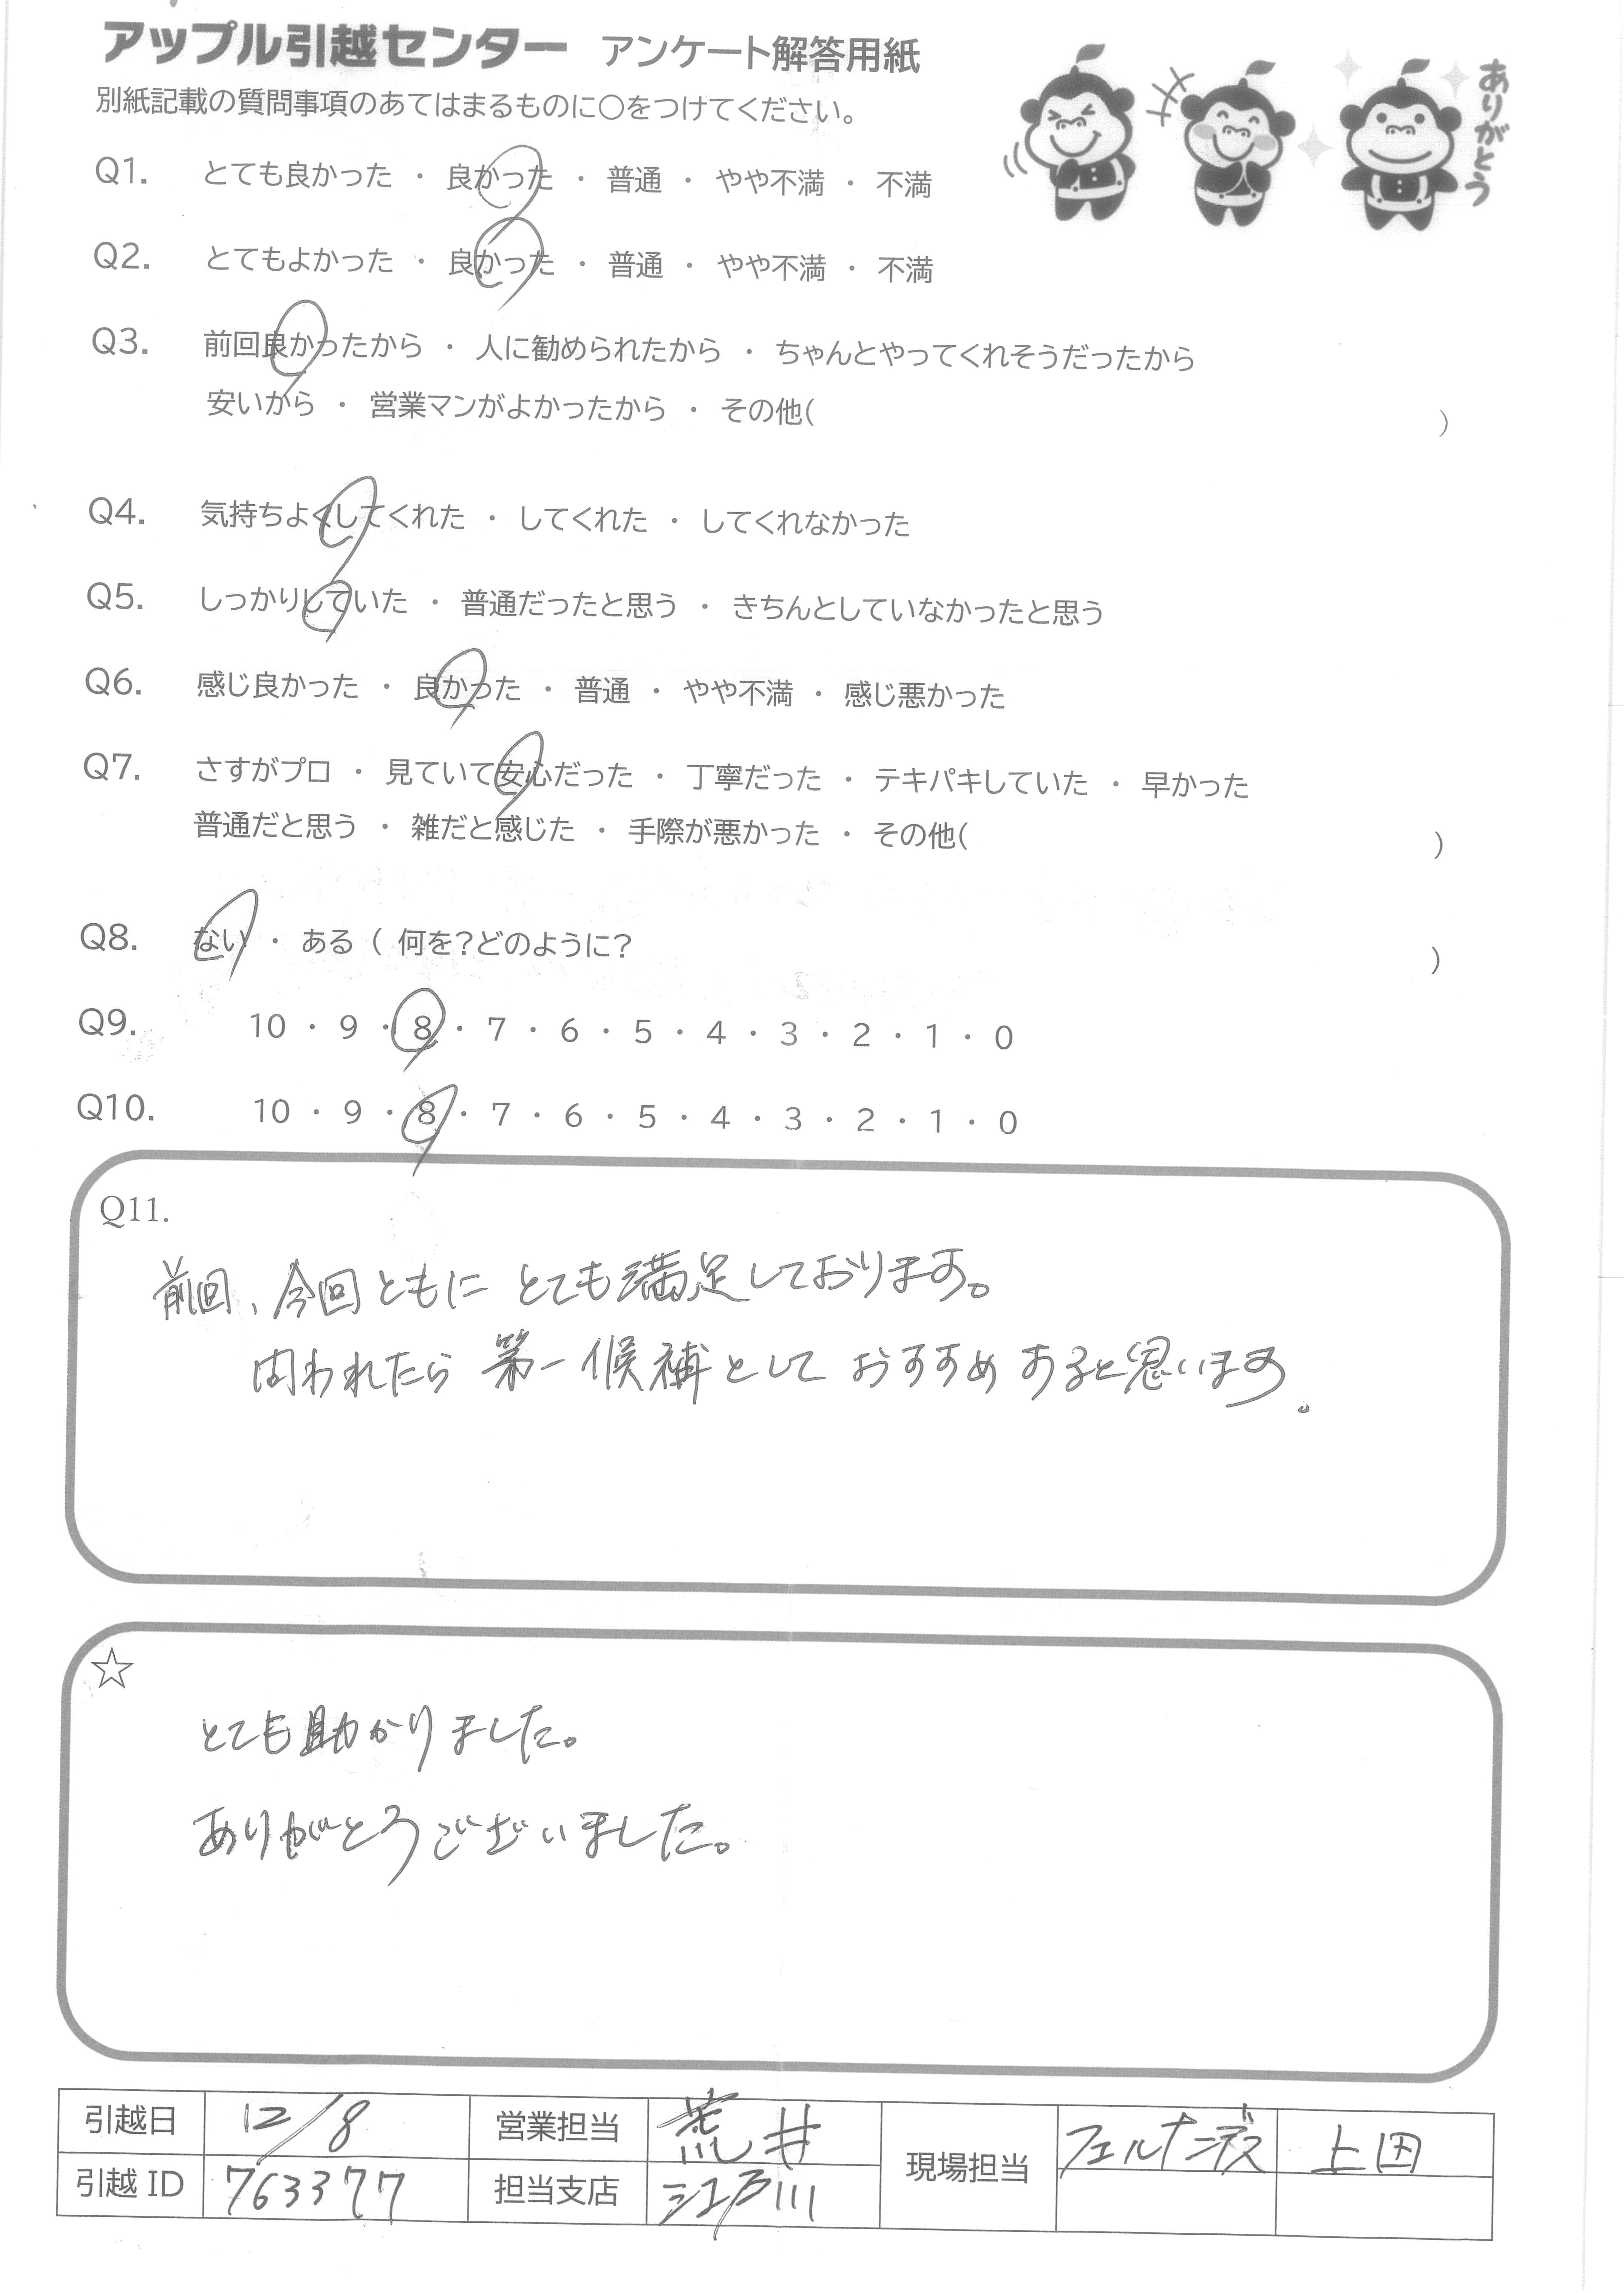 アップル引越センター アンケート解答用紙
別紙記載の質問事項のあてはまるものに○をつけてください。
ありがとう
Q1. とても良かった ・ 良かった ・ 普通 ・ やや不満 ・ 不満
Q2. とてもよかった ・ 良かった ・ 普通 ・ やや不満 ・ 不満
Q3. 前回良かったから ・ 人に勧められたから ・ ちゃんとやってくれそうだったから
安いから ・ 営業マンがよかったから ・ その他( )
Q4. 気持ちよくしてくれた ・ してくれた ・ してくれなかった
Q5. しっかりしていた ・ 普通だったと思う ・ きちんとしていなかったと思う
Q6. 感じ良かった ・ 良かった ・ 普通 ・ やや不満 ・ 感じ悪かった
Q7. さすがプロ ・ 見ていて安心だった ・ 丁寧だった ・ テキパキしていた ・ 早かった
普通だと思う ・ 雑だと感じた ・ 手際が悪かった ・ その他( )
Q8. ない ・ ある ( 何を?どのように? )
Q9. 10 ・ 9 ・ 8 ・ 7 ・ 6 ・ 5 ・ 4 ・ 3 ・ 2 ・ 1 ・ 0
Q10. 10 ・ 9 ・ 8 ・ 7 ・ 6 ・ 5 ・ 4 ・ 3 ・ 2 ・ 1 ・ 0
Q11.
前回、今回ともに とても満足しております。
問われたら 第一候補として おすすめ すると思います。
☆
とても助かりました。
ありがとうございました。
引越日 12/8 営業担当 荒井 現場担当 フェルナンデス 上田
引越 ID 763377 担当支店 江戸川